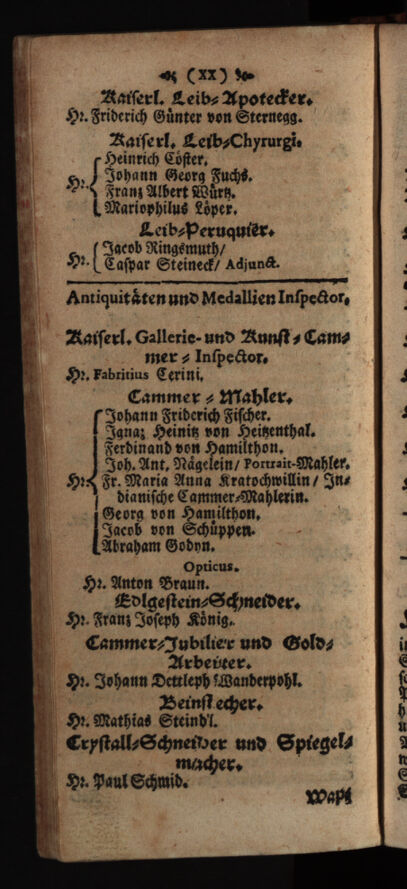 (XX)
Kaiserl. Leib-Apotecker.
Hr. Friderich Günter von Sternegg.
Kaiserl. Leib-Chyrurgi.
Heinrich Cöster.
Johann Georg Fuchs.
Hr. Franz Albert Würtz.
Mariophilus Löper.
Leib-Peruquier.
Jacob Ringsmuth/
Hr. Caspar Steineck/ Adjunct.
Antiquitäten und Medallien Inspector.
Kaiserl. Gallerie- und Kunst-Cam-
mer-Inspector.
Hr. Fabritius Cerini.
Cammer-Mahler.
Johann Friderich Fischer.
Ignaz Heinitz von Heitzenthal.
Ferdinand von Hamilthon.
Joh. Ant. Nägelein/ Portrait-Mahler.
Hr. Fr. Maria Anna Kratochwillin/ In-
dianische Cammer-Mahlerin.
Georg von Hamilthon.
Jacob von Schüppen.
Abraham Godyn.
Opticus.
Hr. Anton Braun.
Edlgestein-Schneider.
Hr. Franz Joseph König.
Cammer-Jubilier und Gold-
Arbeiter.
Hr. Johann Dettleph Wanderpohl.
Beinstecher.
Hr. Mathias Steindl.
Crystall-Schneider und Spiegel-
macher.
Hr. Paul Schmid.
Wap-